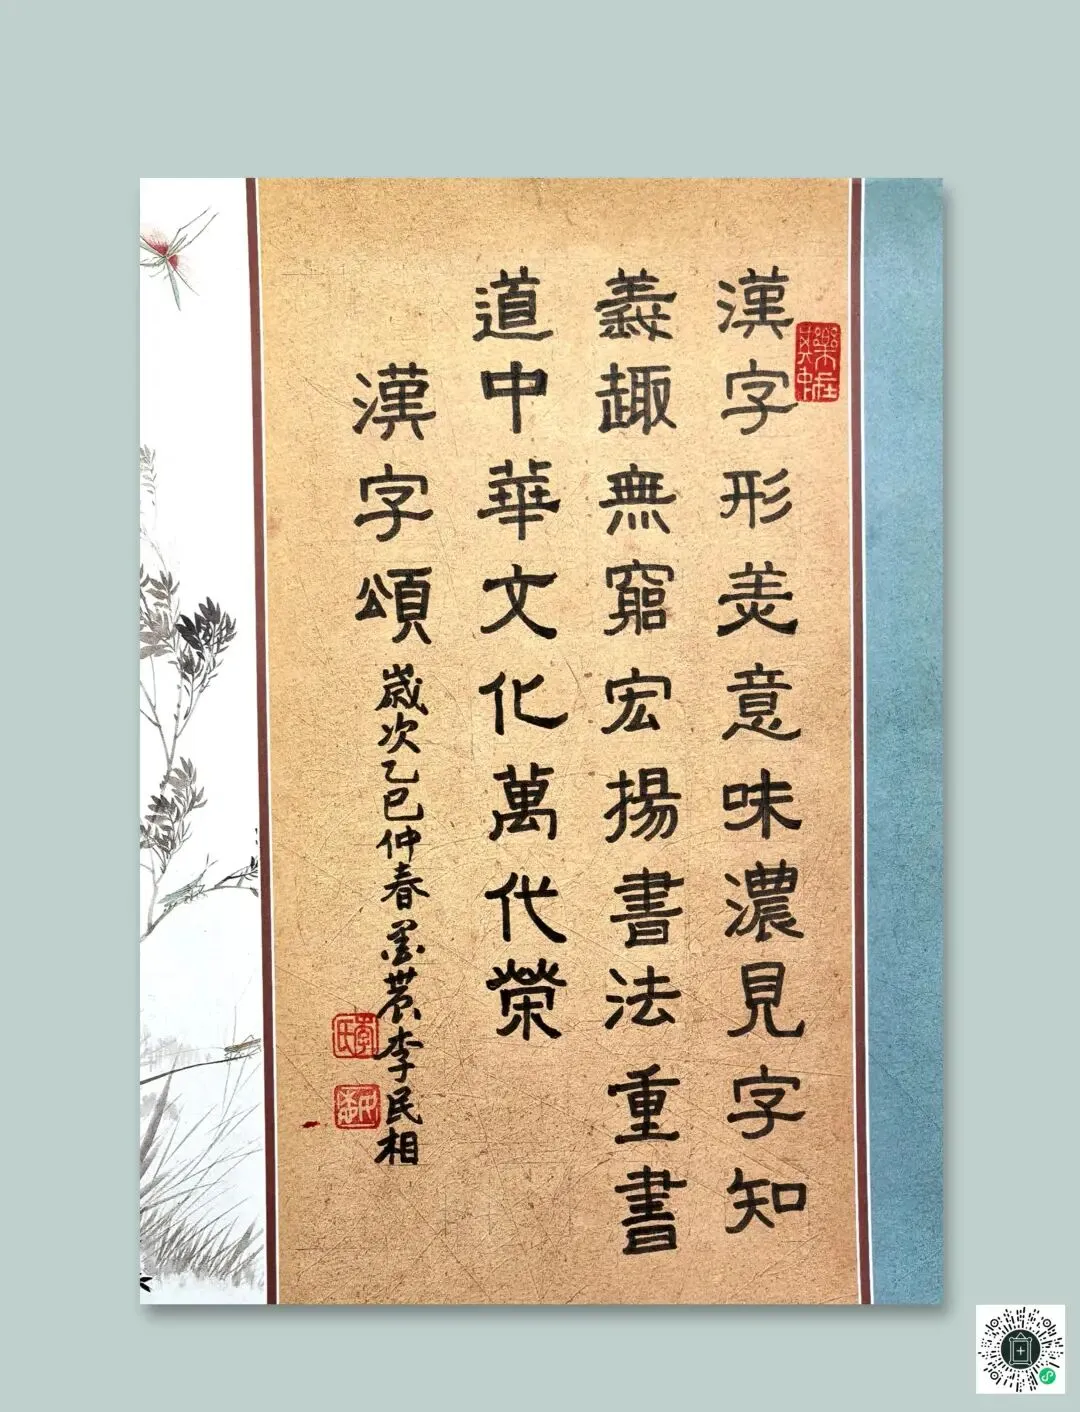 漢字形美意味濃見字知
義趣無窮宏揚書法重書
道中華文化萬代榮
漢字頌
歲次乙巳仲春墨農李民相
樂在其中
李氏